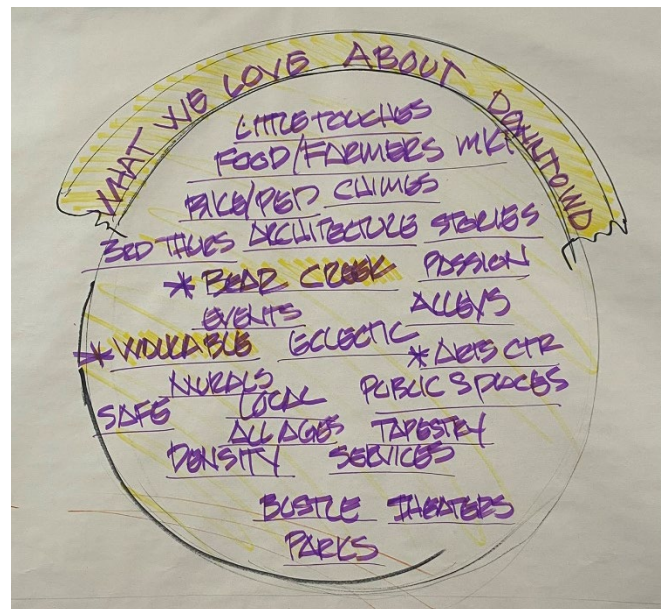 WHAT WE LOVE ABOUT DOWNTOWN
LITTLE TOUCHES
FOOD/FARMERS MKT
BIKE/PED CHIMES
3RD THURS ARCHITECTURE STORIES
* BEAR CREEK PASSION
EVENTS ALLEYS
* WALKABLE ECLECTIC * ARTS CTR
MURALS PUBLIC SPACES
SAFE LOCAL
ALL AGES TAPESTRY
DENSITY SERVICES
BUSTLE THEATERS
PARKS